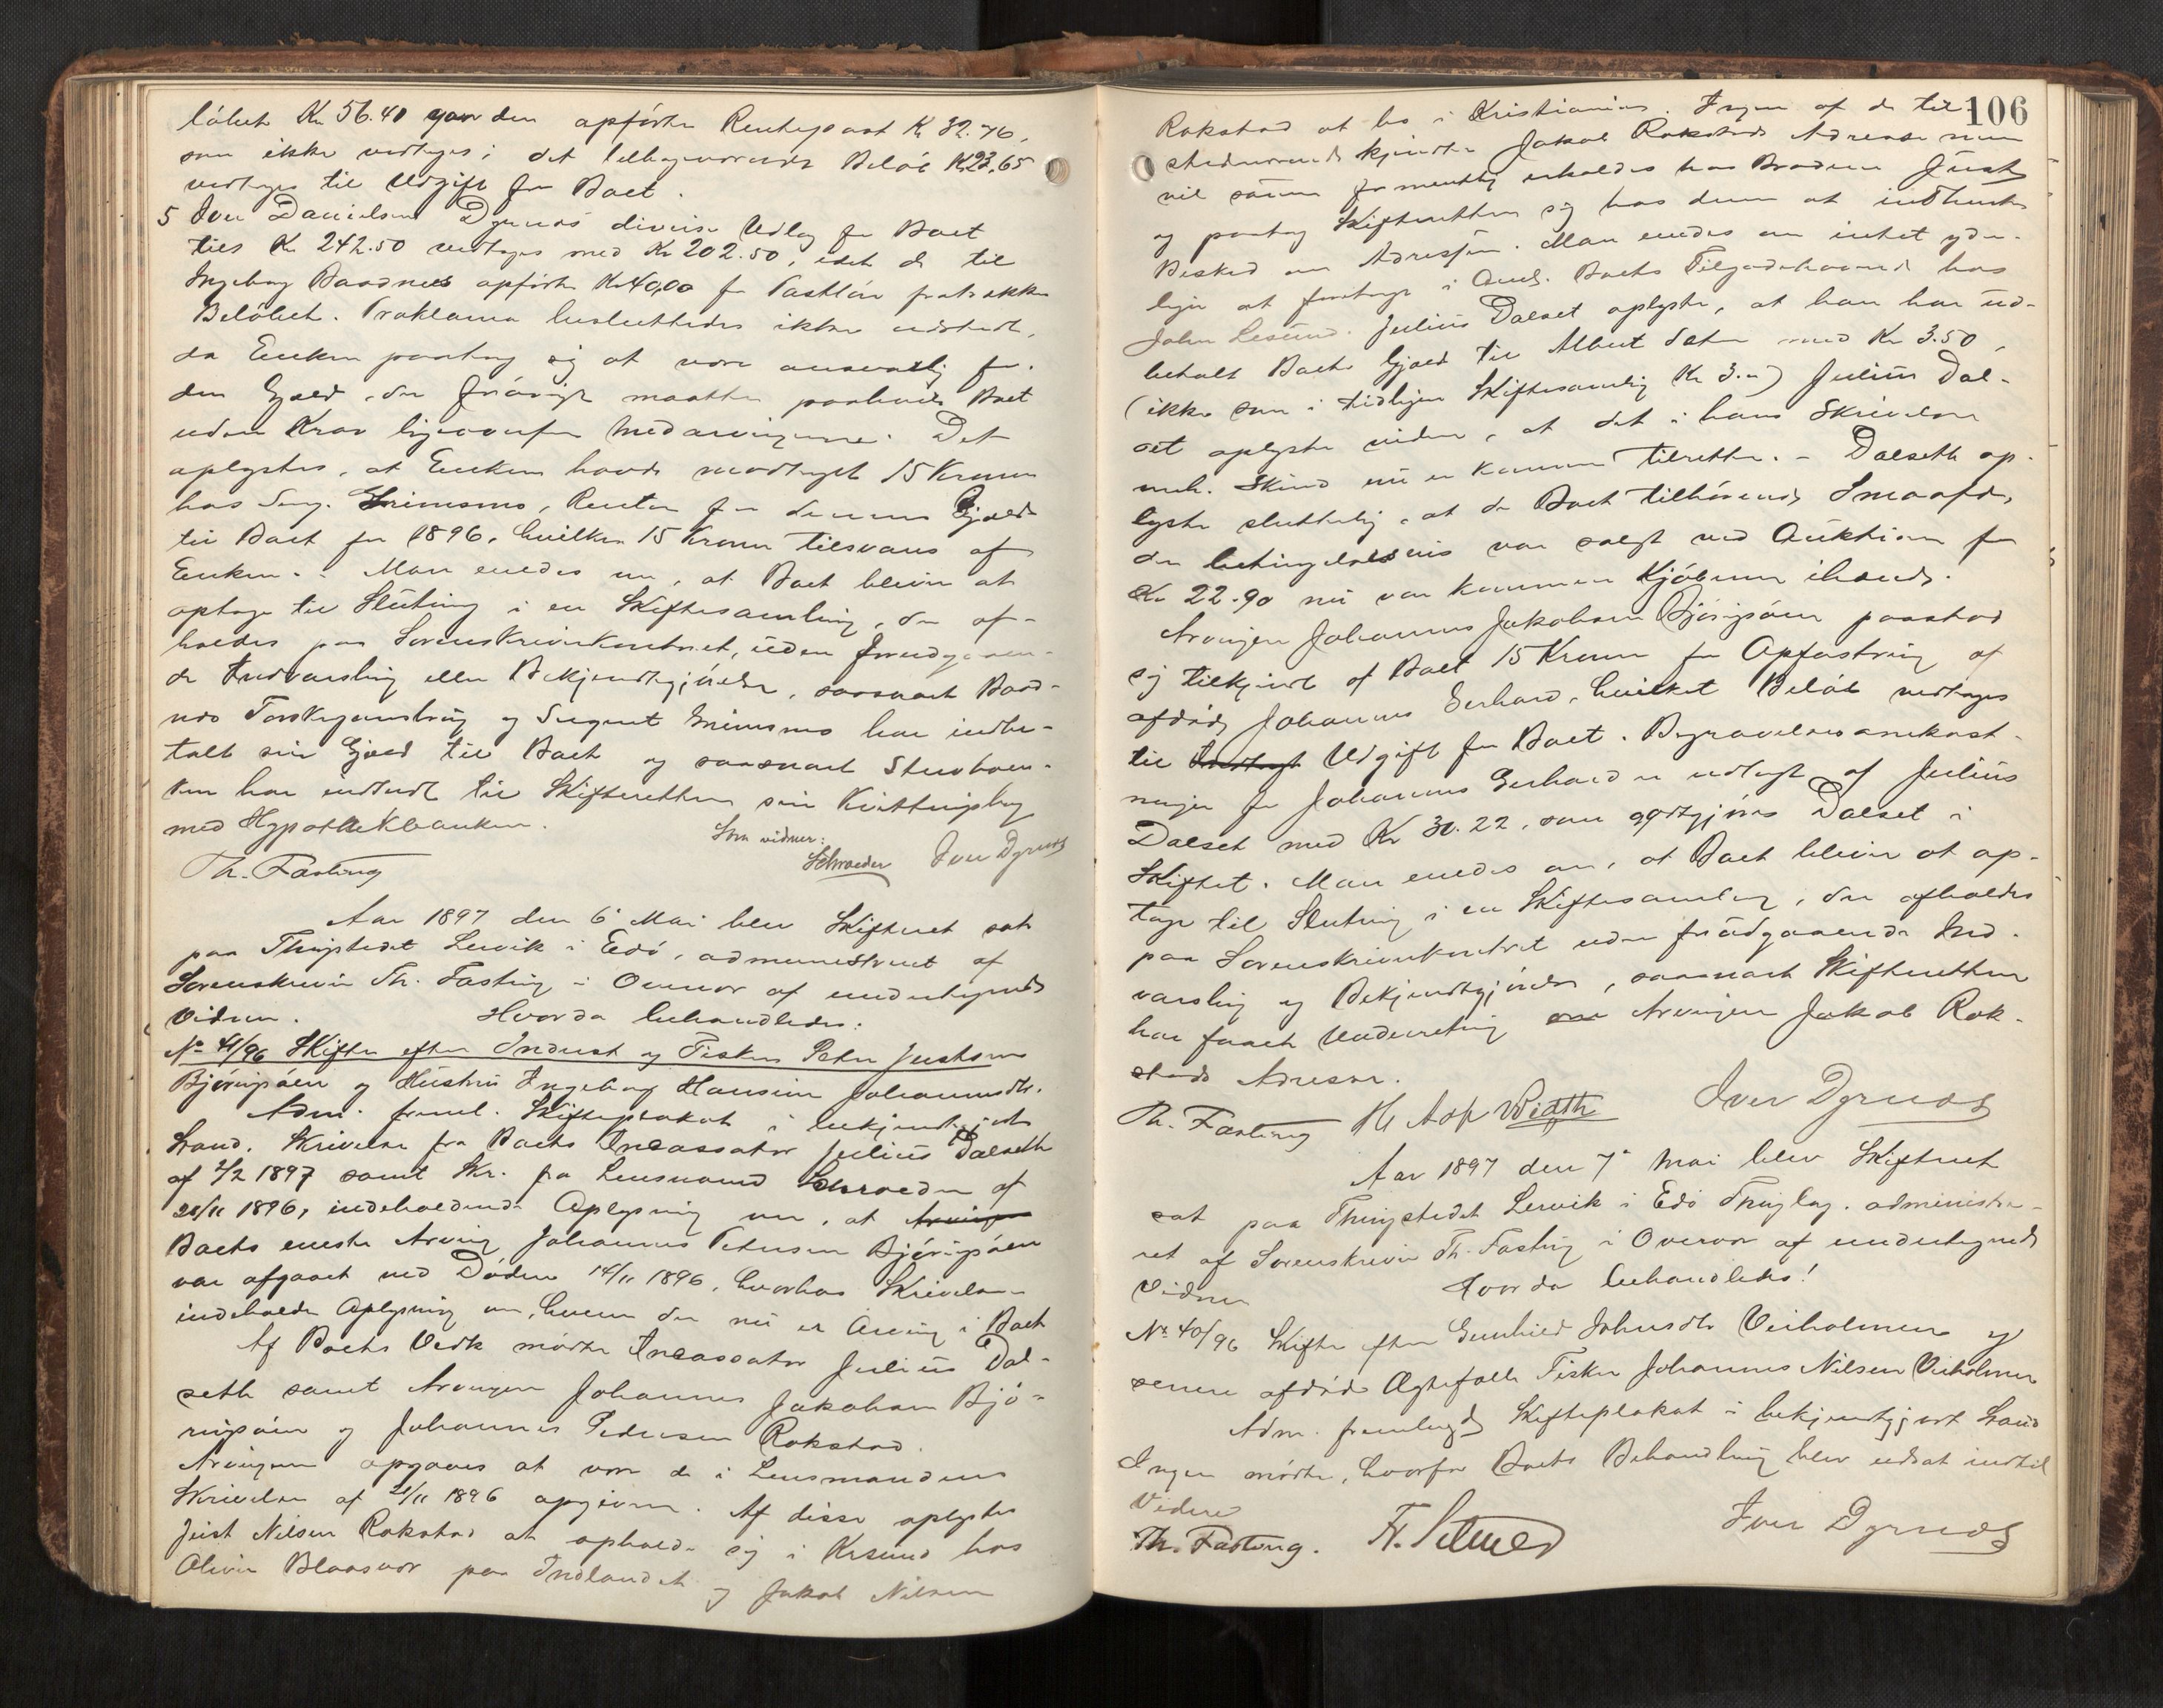 løbet Kr 56.40 gaar den opførte Rentepost Kr 32.76,
som ikke vedtages; det tilbageværende Beløb Kr 23,65
vedtages til Udgift for Boet.
5 Iver Danielsen Dyrnæs diverse Udlæg for Boet
tils Kr 242.50 vedtages med Kr 202.50, idet de til
Ingeborg Baadnes opførte Kr 40,00 for fratrækkes
Beløbet. Proklama besluttedes ikke udstedt,
da Enken paatog sig at være ansvarlig for
den Gjæld, der forøvrigt maatte paahvile Boet
uden Krav ligeoverfor Medarvingerne. Det
oplystes, at Enken havde modtaget 15 Kroner
hos Sev. Grimsmo, Renter for dennes Gjæld
til Boet for 1896, hvilke 15 Kroner tilsvares af
Enken. - Man enedes om, at Boet bliver at
optage til Slutning i en Skiftesamling, der af-
holdes paa Sorenskriverkontoret, uden forudgaaen-
de Indvarsling eller Bekjendtgjørelse, saasnart Baad-
næs Torskegarnsbrug og Sugurt Grimsmo har indbe-
talt sin Gjæld til Boet og saasnart Stervboen-
ken har indsendt til Skifteretten sin Kvitteringsbog
med Hypothekbanken.
Som vidner:
Th. Fasting Schroeder Iver Dyrnæs
Aar 1897 den 6 Mai blev Skifteret sat
paa Thingstedet Leirvik i Edø, administreret af
Sorenskriver Th. Fasting i Overvær af undertegnede
Vidner. Hvorda behandledes:
No 41/96 Skifte efter Inderst og Fisker Peter Justsen
Bjøringsøen og Hustru Ingeborg Hansine Johannesdtr.
Adm. freml. Skifteplakat i bekjendtgjort
Stand. Skrivelse fra Boets Incassator Julius Dalseth
af 2/2 1897 samt Skr. fra Lensmand Schroeder af
21/11 1896, indeholdende Oplysning om, at Arvinge
Boets eneste Arving Johannes Petersen Bjøringsøen
var afgaaet ved Døden 14/11 1896, hvorhos Skrivelsen
indeholder Oplysning om, hvem der nu er Arving i Boet
Af Boets Vedk mødte Incassator Julius Dal-
seth samt Arvingen Johannes Jakobsen Bjø-
ringsøen og Johannes Pedersen Rokstad.
Arvingerne opgaves at være de i Lensmandens
Skrivelse af 21/11 1896 opgivne. Af disse oplystes
Just Nilsen Rokstad at opholde sig i Krsund hos
Oliver Blaasvær paa Indlandet og Jakob Nilsen
106
Rokstad at bo i Kristiania. Ingen af de til-
stedeværende kjendte Jakob Rokstads Adresse men
vil samme formentlig erholdes hos Broderen Just
og paatog Skifteretten sig hos denne at indhente
Besked om Adressen. Man enedes om intet yder-
ligere at foretage i Anl. Boets Tilgodehavende hos
John Lesund. Julius Dalset oplyste, at han har ud-
betalt Boets Gjæld til Albert Sæter med Kr 3.50,
(ikke som i tidligere Skiftesamling Kr 3.-) Julius Dal-
set oplyste videre, at det i hans Skrivelse
meh. Skind nu er kommen tilrette. - Dalseth op-
lyste sluttelig, at de Boet tilhørende Smaafæ,
der betingelsesvis var solgt ved Auktion for
Kr 22.90 nu var kommen Kjøberen ihænde.
Arvingen Johannes Jakobsen Bjøringsøen paastod
sig tilkjendt af Boet 15 Kroner for Opfostring af
afdøde Johannes Gerhard, hvilket Beløb vedtages
til Indtægt Udgift for Boet. Begravelsesomkost-
ninger for Johannes Gerhard er udlagt af Julius
Dalset med Kr 30.22, som godtgjøres Dalset i
Skiftet. Man enedes om, at Boet bliver at op-
tage til Slutning i en Skiftesamling, der afholdes
paa Sorenskriverkontoret uden forudgaaende Ind-
varsling og Bekjendtgjørelse, saasnart Skifteretten
har faaet Underretning om Arvingen Jakob Rok-
stads Adresse.
Th. Fasting Iver Dyrnæs
Aar 1897 den 7 Mai blev Skifteret
sat paa Thingstedet Leirvik i Edø Thinglag, administre-
ret af Sorenskriver Th. Fasting i Overvær af undertegnede
Vidner Hvorda behandledes!
No 40/96 Skifte efter Gunhild Johnsdtr Veiholmen og
senere afdøde Ægtefælle Fisker Johannes Nilsen Veiholmen
Adm. fremlagde Skifteplakat i bekjendtgjort Stand
Ingen mødte, hvorfor Boets Behandling blev udsat indtil
Videre
Th. Fasting. Iver Dyrnæs